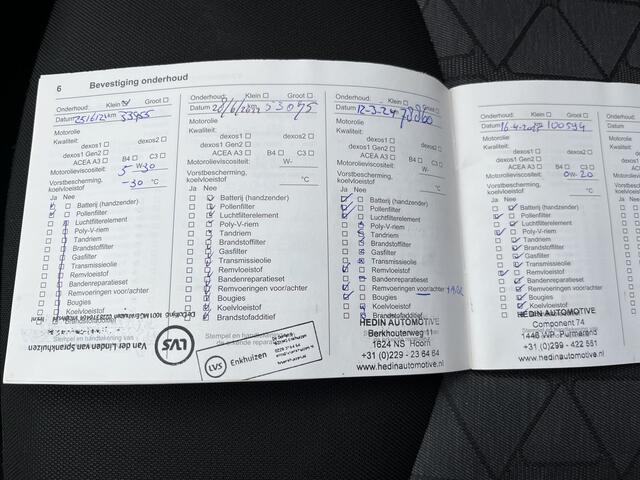 6 Bevestiging onderhoud
Onderhoud: Klein Groot
Datum km 53955
Motorolie
Kwaliteit:
dexos1 dexos2
dexos1 Gen2
ACEA A3 B4 C3
Motorolieviscositeit: 5 W-30
Vorstbescherming, koelvloeistof -30 °C
Ja Nee
Batterij (handzender)
Pollenfilter
Luchtfilterelement
Poly-V-riem
Tandriem
Brandstoffilter
Gasfilter
Transmissieolie
Remvloeistof
Bandenreparatieset
Remvoeringen voor/achter
Bougies
Koelvloeistof
Van der Linden van Sprankhuizen
LVS
Onderhoud: Klein Groot
Datum 53075
Motorolie
Kwaliteit:
dexos1 dexos2
dexos1 Gen2
ACEA A3 B4 C3
Motorolieviscositeit: W-
Vorstbescherming, koelvloeistof °C
Ja Nee
Batterij (handzender)
Pollenfilter
Luchtfilterelement
Poly-V-riem
Tandriem
Brandstoffilter
Gasfilter
Transmissieolie
Remvloeistof
Bandenreparatieset
Remvoeringen voor/achter
Bougies
Koelvloeistof
Brandstofadditief
LVS Enkhuizen
Onderhoud: Klein Groot
Datum 12-3-24 78860
Motorolie
Kwaliteit:
dexos1 dexos2
dexos1 Gen2
ACEA A3 B4 C3
Motorolieviscositeit: W-
Vorstbescherming, koelvloeistof °C
Ja Nee
Batterij (handzender)
Pollenfilter
Luchtfilterelement
Poly-V-riem
Tandriem
Brandstoffilter
Gasfilter
Transmissieolie
Remvloeistof
Bandenreparatieset
Remvoeringen voor/achter
Bougies
Koelvloeistof
Brandstofadditief
HEDIN AUTOMOTIVE
Berkhouterweg 11
1624 NS Hoorn
+31 (0)229 - 23 64 64
www.hedinautomotive.nl
Onderhoud: Klein Groot
Datum 100594
Motorolie
Kwaliteit:
dexos1 dexos2
dexos1 Gen2
ACEA A3 B4 C3
Motorolieviscositeit: 0W-20
Vorstbescherming, koelvloeistof °C
Ja Nee
Batterij (handzender)
Pollenfilter
Luchtfilterelement
Poly-V-riem
Tandriem
Brandstoffilter
Gasfilter
Transmissieolie
Remvloeistof
Bandenreparatieset
Remvoeringen voor/achter
Bougies
Koelvloeistof
Brandstofadditief
HEDIN AUTOMOTIVE
Component 74
1446 WP Purmerend
+31 (0)299 - 422 551
www.hedinautomotive.nl